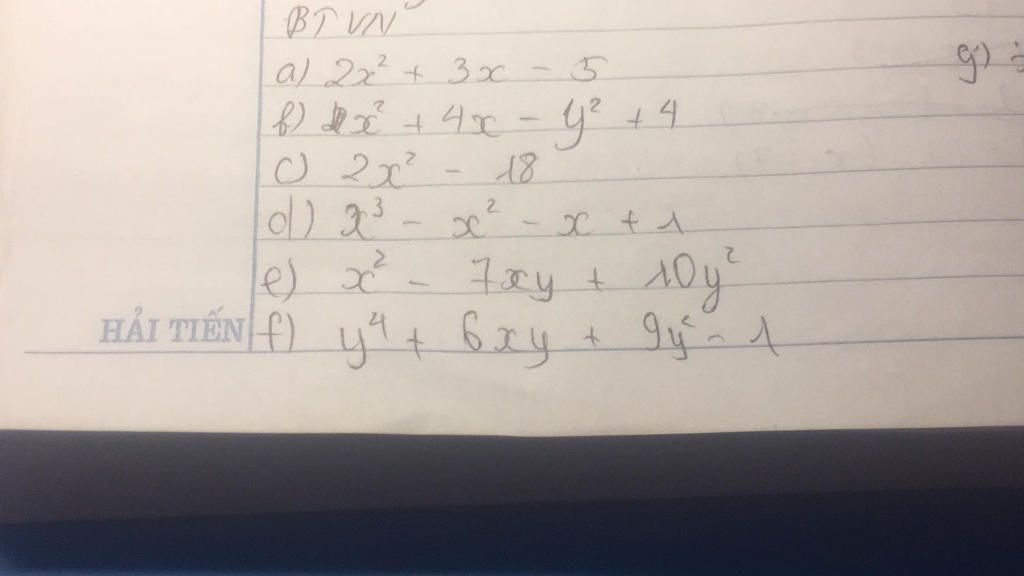 BTVN
a) 2x² + 3x - 5
g)
b) x² + 4x - y² + 4
c) 2x² - 18
d) x³ - x² - x + 1
e) x² - 7xy + 10y²
HẢI TIẾN
f) y⁴ + 6xy + 9y² - 1